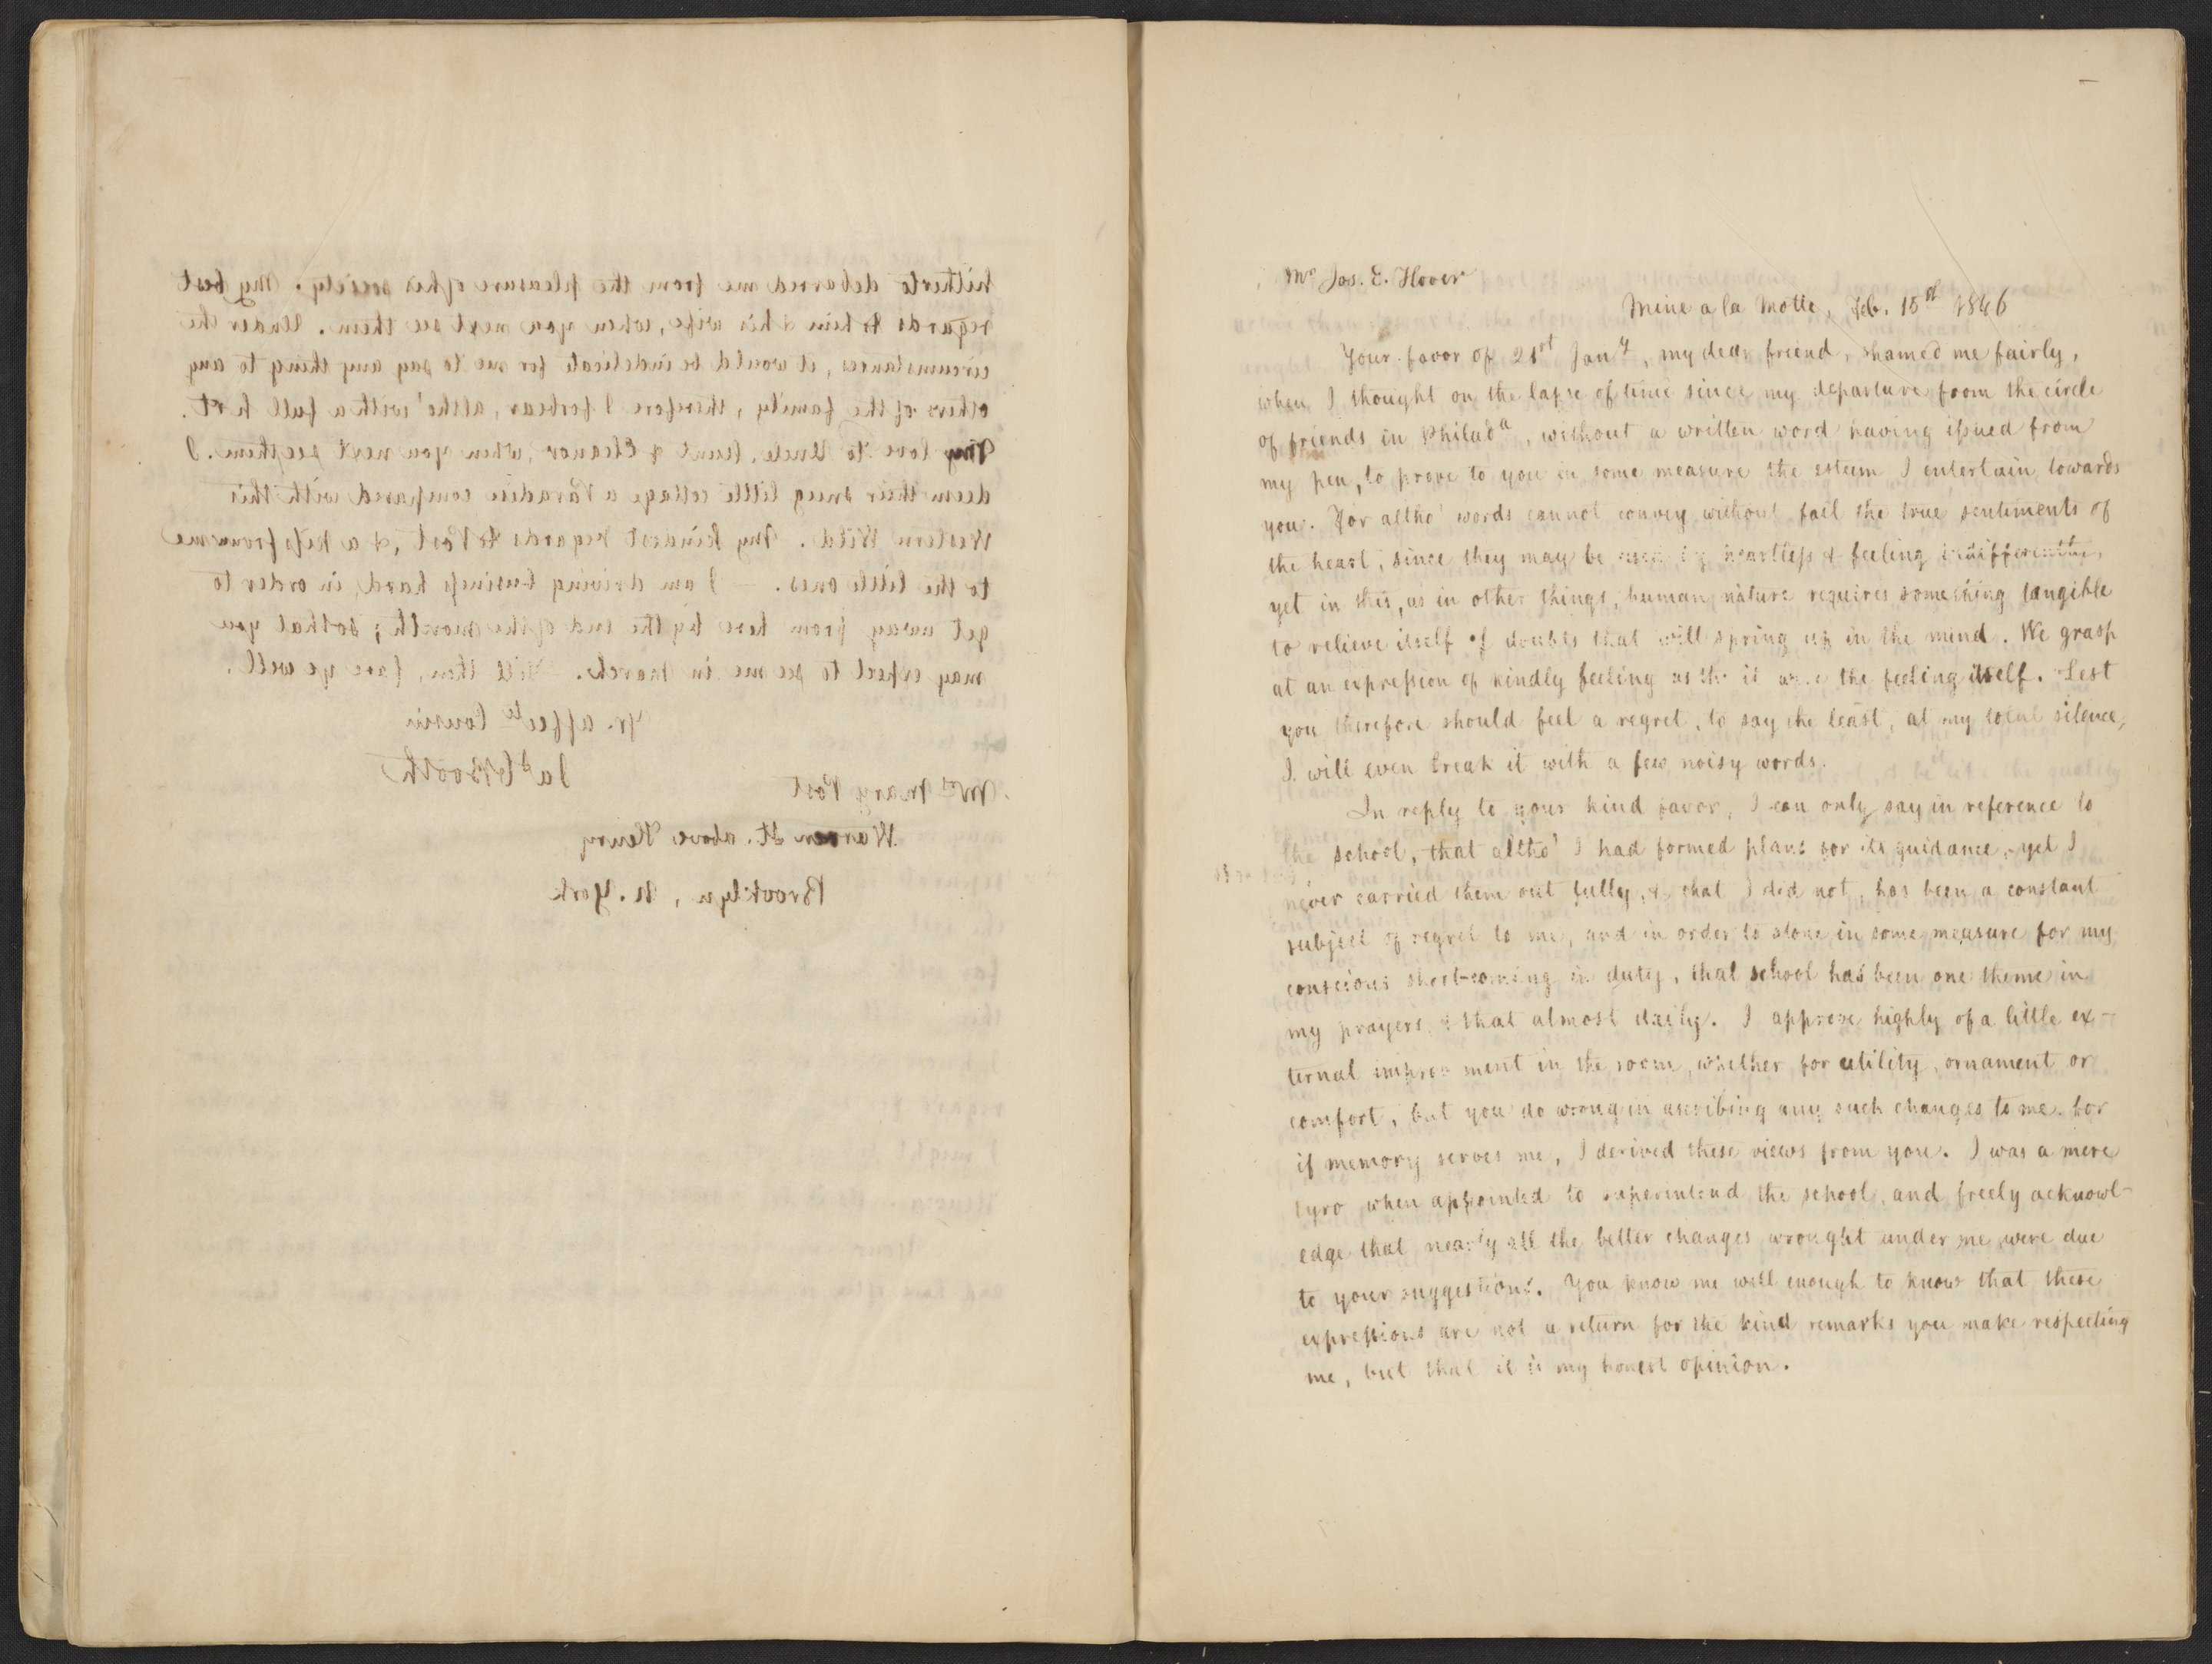 hitherto debarred me from the pleasure of his society. My best
regards to him & his wife, when you next see them. Under the
circumstances, it would be indelicate for me to say any thing to any
others of the family, therefore I forbear, altho' with a full h'rt.
My love to Uncle, Aunt & Eleanor, when you next see them. I
deem their snug little cottage a Paradise compared with this
Western Wild. My kindest regards to Post, & a kiss from me
to the little ones. — I am driving business hard, in order to
get away from here by the end of the month; so that you
may expect to see me in March. Till then, fare ye well.
Yr. affecte Cousin
Jas C Booth
Mrs Mary Post
Warren St. above Henry
Brooklyn, N. York
Mr Jos. E. Hover
Mine a la Motte, Feb. 15th 1846
Your favor of 21st Jany, my dear friend, shamed me fairly,
when I thought on the lapse of time since my departure from the circle
of friends in Philada, without a written word having issued from
my pen, to prove to you in some measure the esteem I entertain towards
you. For altho' words cannot convey without fail the true sentiments of
the heart, since they may be heartless & feeling
yet in this, as in other things, human nature requires something tangible
to relieve itself of doubts that will spring up in the mind. We grasp
at an expression of kindly feeling as tho' it were the feeling itself. Lest
you therefore should feel a regret, to say the least, at my total silence,
I will even break it with a few noisy words.
In reply to your kind favor, I can only say in reference to
the school, that altho' I had formed plans for its guidance, yet I
never carried them out fully, & that I did not, has been a constant
subject of regret to me, and in order to atone in some measure for my
conscious short-coming in duty, that school has been one theme in
my prayers, & that almost daily. I approve highly of a little ex-
ternal improvement in the room, whether for utility, ornament or
comfort, but you do wrong in ascribing any such changes to me, for
if memory serves me, I derived these views from you. I was a mere
tyro when appointed to superintend the school, and freely acknowl-
edge that nearly all the better changes wrought under me were due
to your suggestions. You know me well enough to know that these
expressions are not a return for the kind remarks you make respecting
me, but that it is my honest opinion.